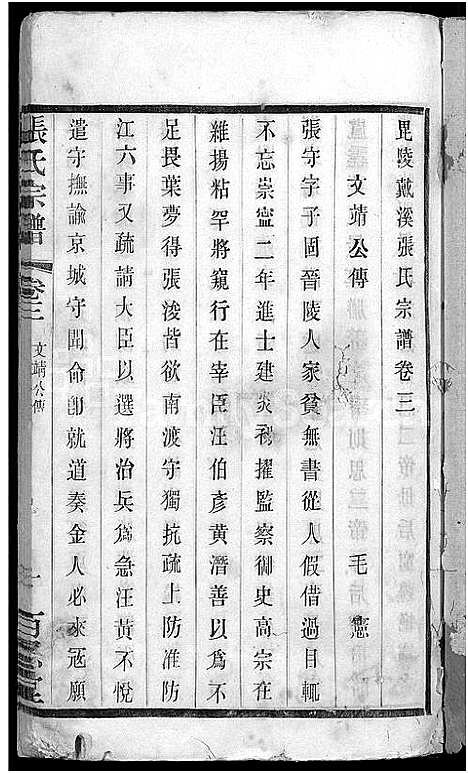 毘陵戴溪張氏宗譜卷三
文靖公傳 毛憲
張守字子固晉陵人家貧無書從人假借過目輒
不忘崇寧二年進士建炎初擢監察御史高宗在
維揚粘罕將窺行在宰臣汪伯彥黃潛善以爲不
足畏葉夢得張浚皆欲南渡守獨抗疏上防准防
江六事又疏請大臣以選將治兵爲急汪黃不悅
遣守撫諭京城守聞命卽就道奏金人必來冦願
張氏宗譜 卷三 文靖公傳 一